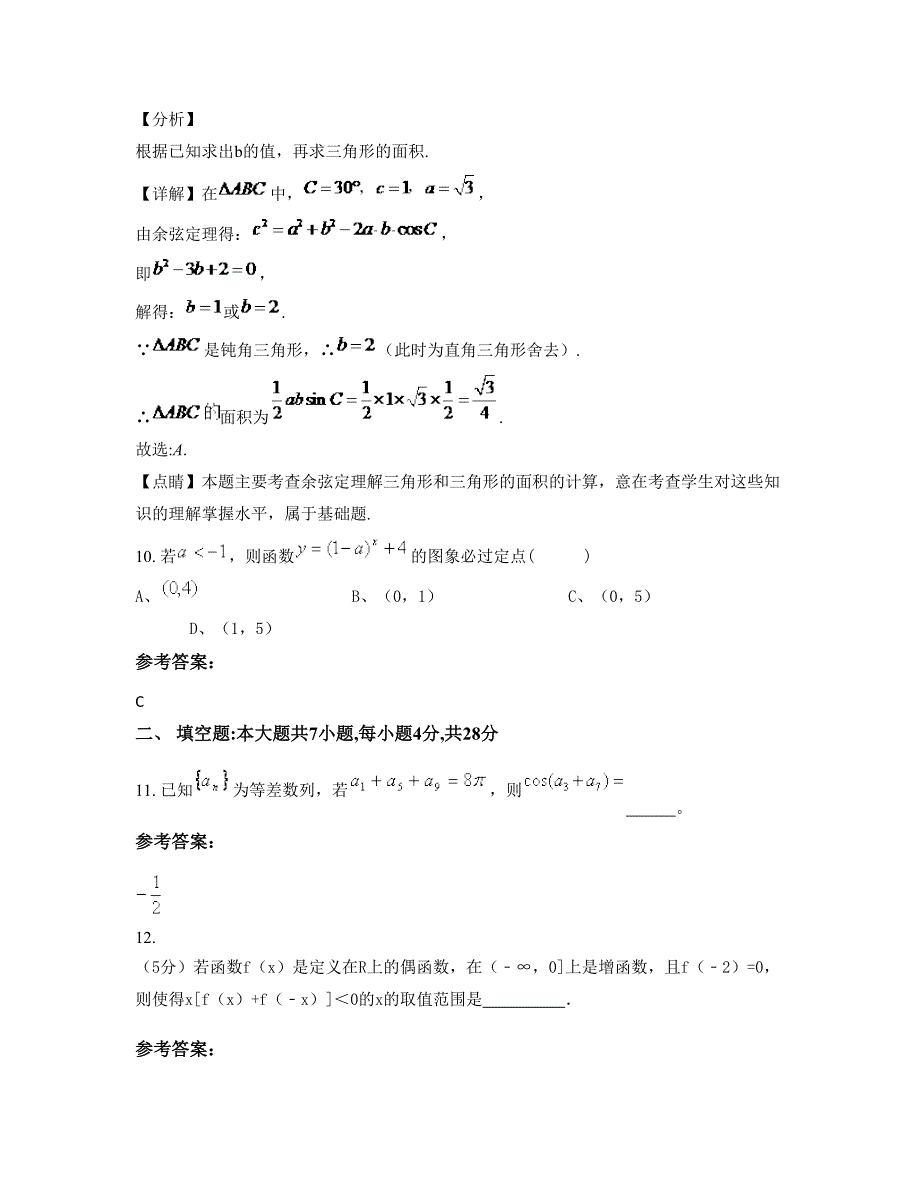 【分析】
根据已知求出b的值，再求三角形的面积.
【详解】在ΔABC中，C=30°，c=1，a=√3，
由余弦定理得：c²=a²+b²-2a·b·cosC，
即b²-3b+2=0，
解得：b=1或b=2.
∵ΔABC是钝角三角形，∴b=2（此时为直角三角形舍去）.
∴ΔABC的面积为1/2absinC=1/2×1×√3×1/2=√3/4.
故选:A.
【点睛】本题主要考查余弦定理解三角形和三角形的面积的计算，意在考查学生对这些知
识的理解掌握水平，属于基础题.
10. 若a<-1，则函数y=(1-a)^x+4的图象必过定点(     )
A、(0,4)     B、（0，1）     C、（0，5）
D、（1，5）
参考答案：
C
二、 填空题:本大题共7小题,每小题4分,共28分
11. 已知{a_n}为等差数列，若a₁+a₅+a₉=8π，则cos(a₃+a₇)=______。
参考答案：
-1/2
12.
（5分）若函数f（x）是定义在R上的偶函数，在（﹣∞，0]上是增函数，且f（﹣2）=0，
则使得x[f（x）+f（﹣x）]＜0的x的取值范围是__________．
参考答案：